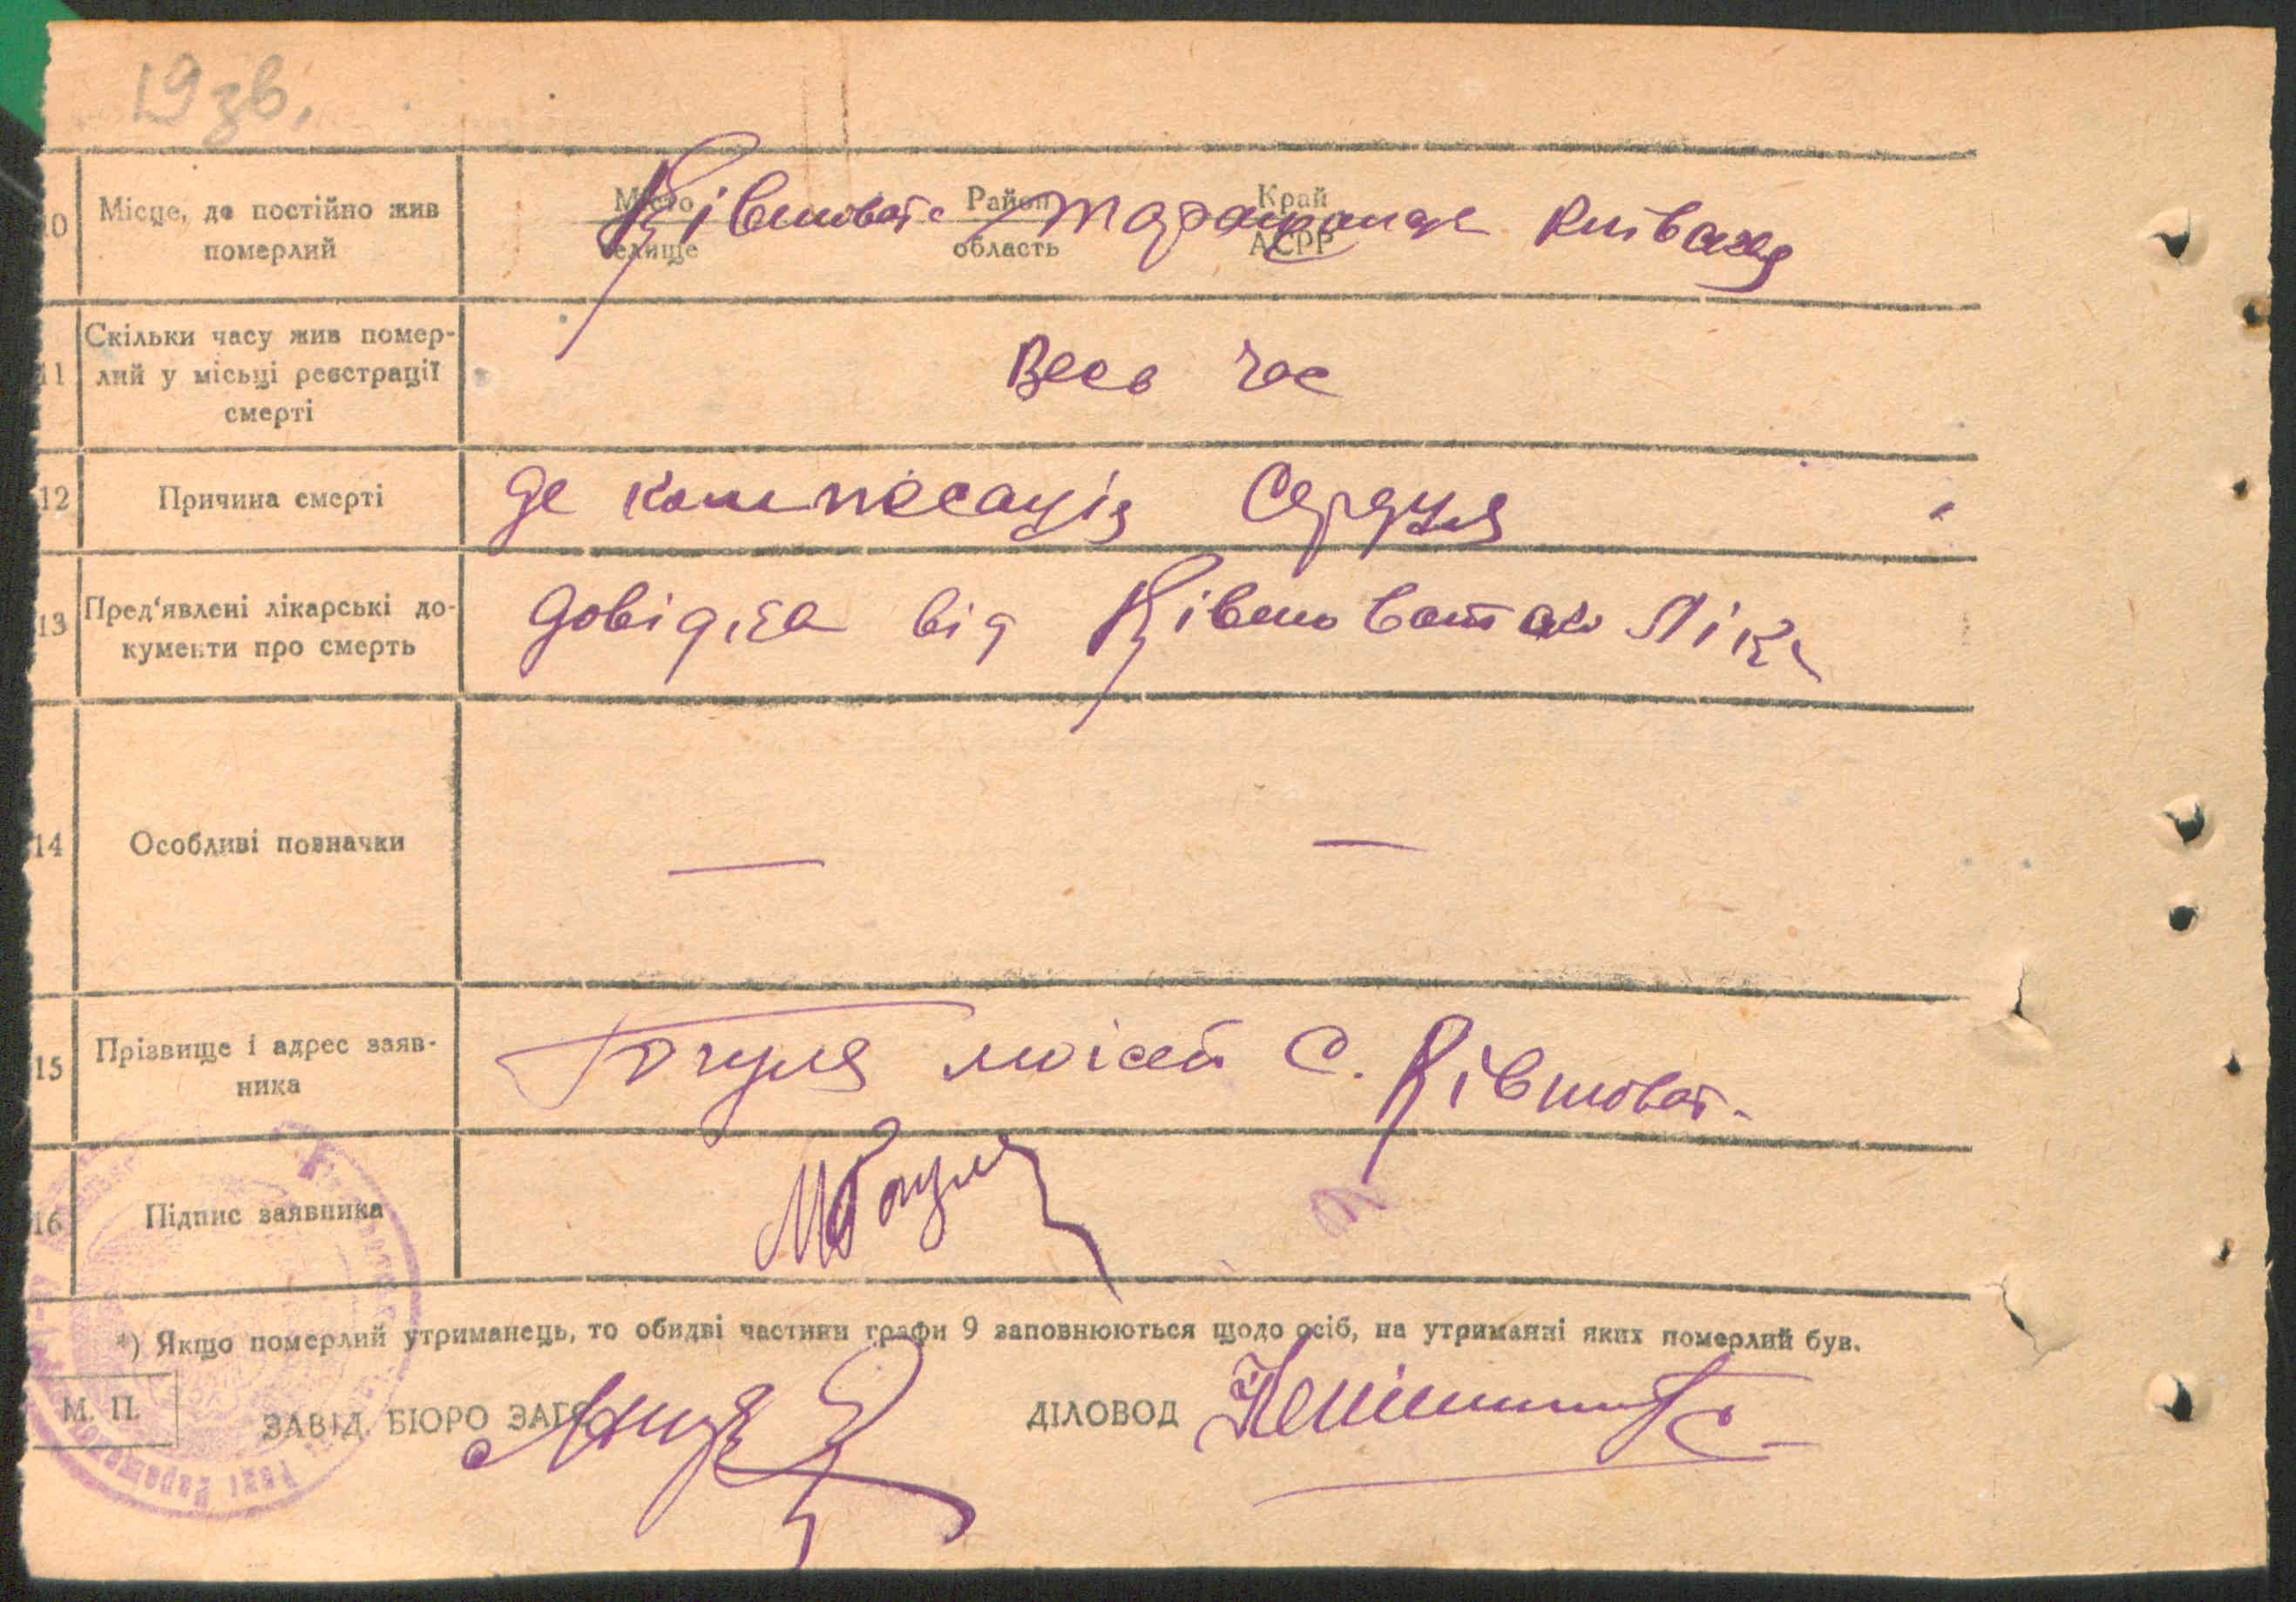 19 зв.
10 Місце, де постійно жив померлий
Місто селище Район область Край АСРР
Ківшоват. Таращанськ Київська
11 Скільки часу жив помер-
лий у місьці реєстрації
смерті
Весь час
12 Причина смерті
де компесація Сердця
13 Пред'явлені лікарські до-
кументи про смерть
довідка від Ківшоватськ Лікс
14 Особливі повначки
— —
15 Прізвище і адрес заяв-
ника
моісей С. Ківшоват.
16 Підпис заявника
*) Якщо померлий утриманець, то обидві частини графи 9 заповнюються щодо осіб, на утриманні яких померлий був.
М. П.
ЗАВІД. БЮРО ЗАГС
ДІЛОВОД